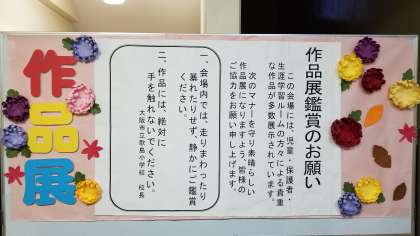 作品展
作品展鑑賞のお願い
この会場には、児童・保護者・
生涯学習ルームの方々による貴重
な作品が多数展示されています。
次のマナーを守り素晴らしい
作品展になりますよう、皆様の
ご協力をお願い申し上げます。
一、会場内では、走りまわったり
暴れたりせず、静かにご鑑賞
ください。
二、作品には、絶対に
手を触れないでください。
大阪市立歌島小学校 校長